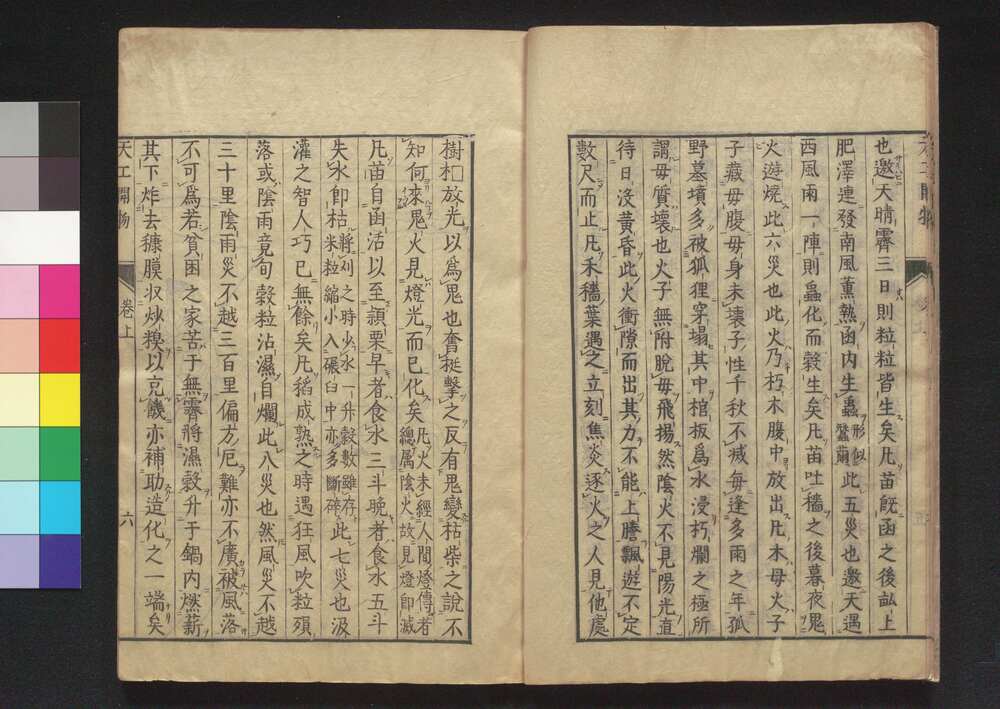 也邀天晴霽三日則粒粒皆生矣凡苗既函之後畝上
肥澤連發南風薰熱函內生蟲形似蠶繭此五災也邀天遇
西風雨一陣則蟲化而穀生矣凡苗吐穡之後暮夜鬼
火遊燒此六災也此火乃朽木腹中放出凡木母火子
子藏母腹母身未壞子性千秋不滅每逢多雨之年孤
野墓墳多被狐狸穿塌其中棺板爲水浸朽爛之極所
謂母質壞也火子無附脫母飛揚然陰火不見陽光直
待日沒黃昏此火衝隙而出其力不能上騰飄遊不定
數尺而止凡禾穡葉遇之立刻焦炎逐火之人見他處
樹 放光以爲鬼也奮挺擊之反有鬼變枯柴之說不
知何來鬼火見燈光而已化矣凡火未經人間燈傳者總屬陰火故見燈即滅
凡苗自函活以至穎栗早者食水三斗晚者食水五斗
失水即枯將刈之時少水一升穀數雖存米粒縮小入碾臼中亦多斷碎此七災也汲
灌之智人巧已無餘矣凡稻成熟之時遇狂風吹粒殞
落或陰雨竟旬穀粒沾濕自爛此八災也然風災不越
三十里陰雨災不越三百里偏方厄難亦不廣被風落
不可爲若貧困之家苦于無霽將濕穀升于鍋內燃薪
其下炸去糠膜收炒糗以充饑亦補助造化之一端矣
天工開物
卷上
六